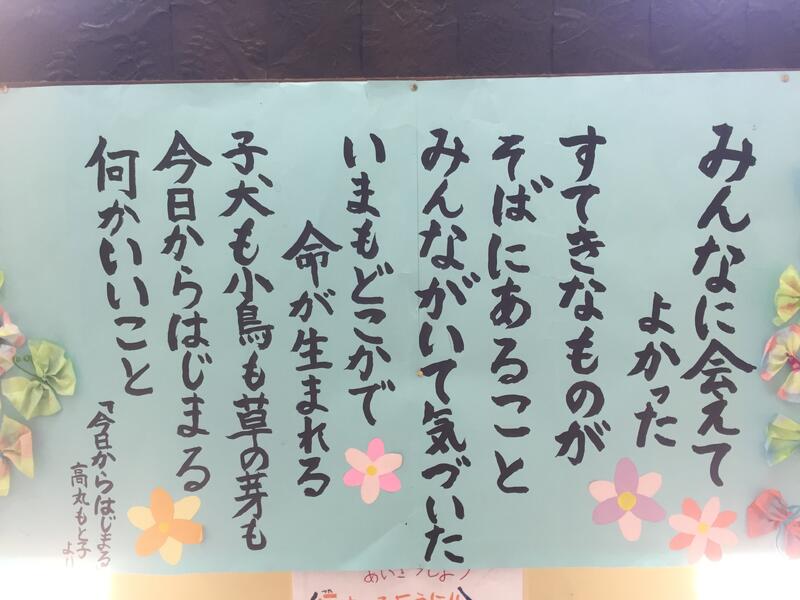 みんなに会えて
よかった
すてきなものが
そばにあること
みんながいて気づいた
いまもどこかで
命が生まれる
子犬も小鳥も草の芽も
今日からはじまる
何かいいこと
「今日からはじまる
高丸もと子
より